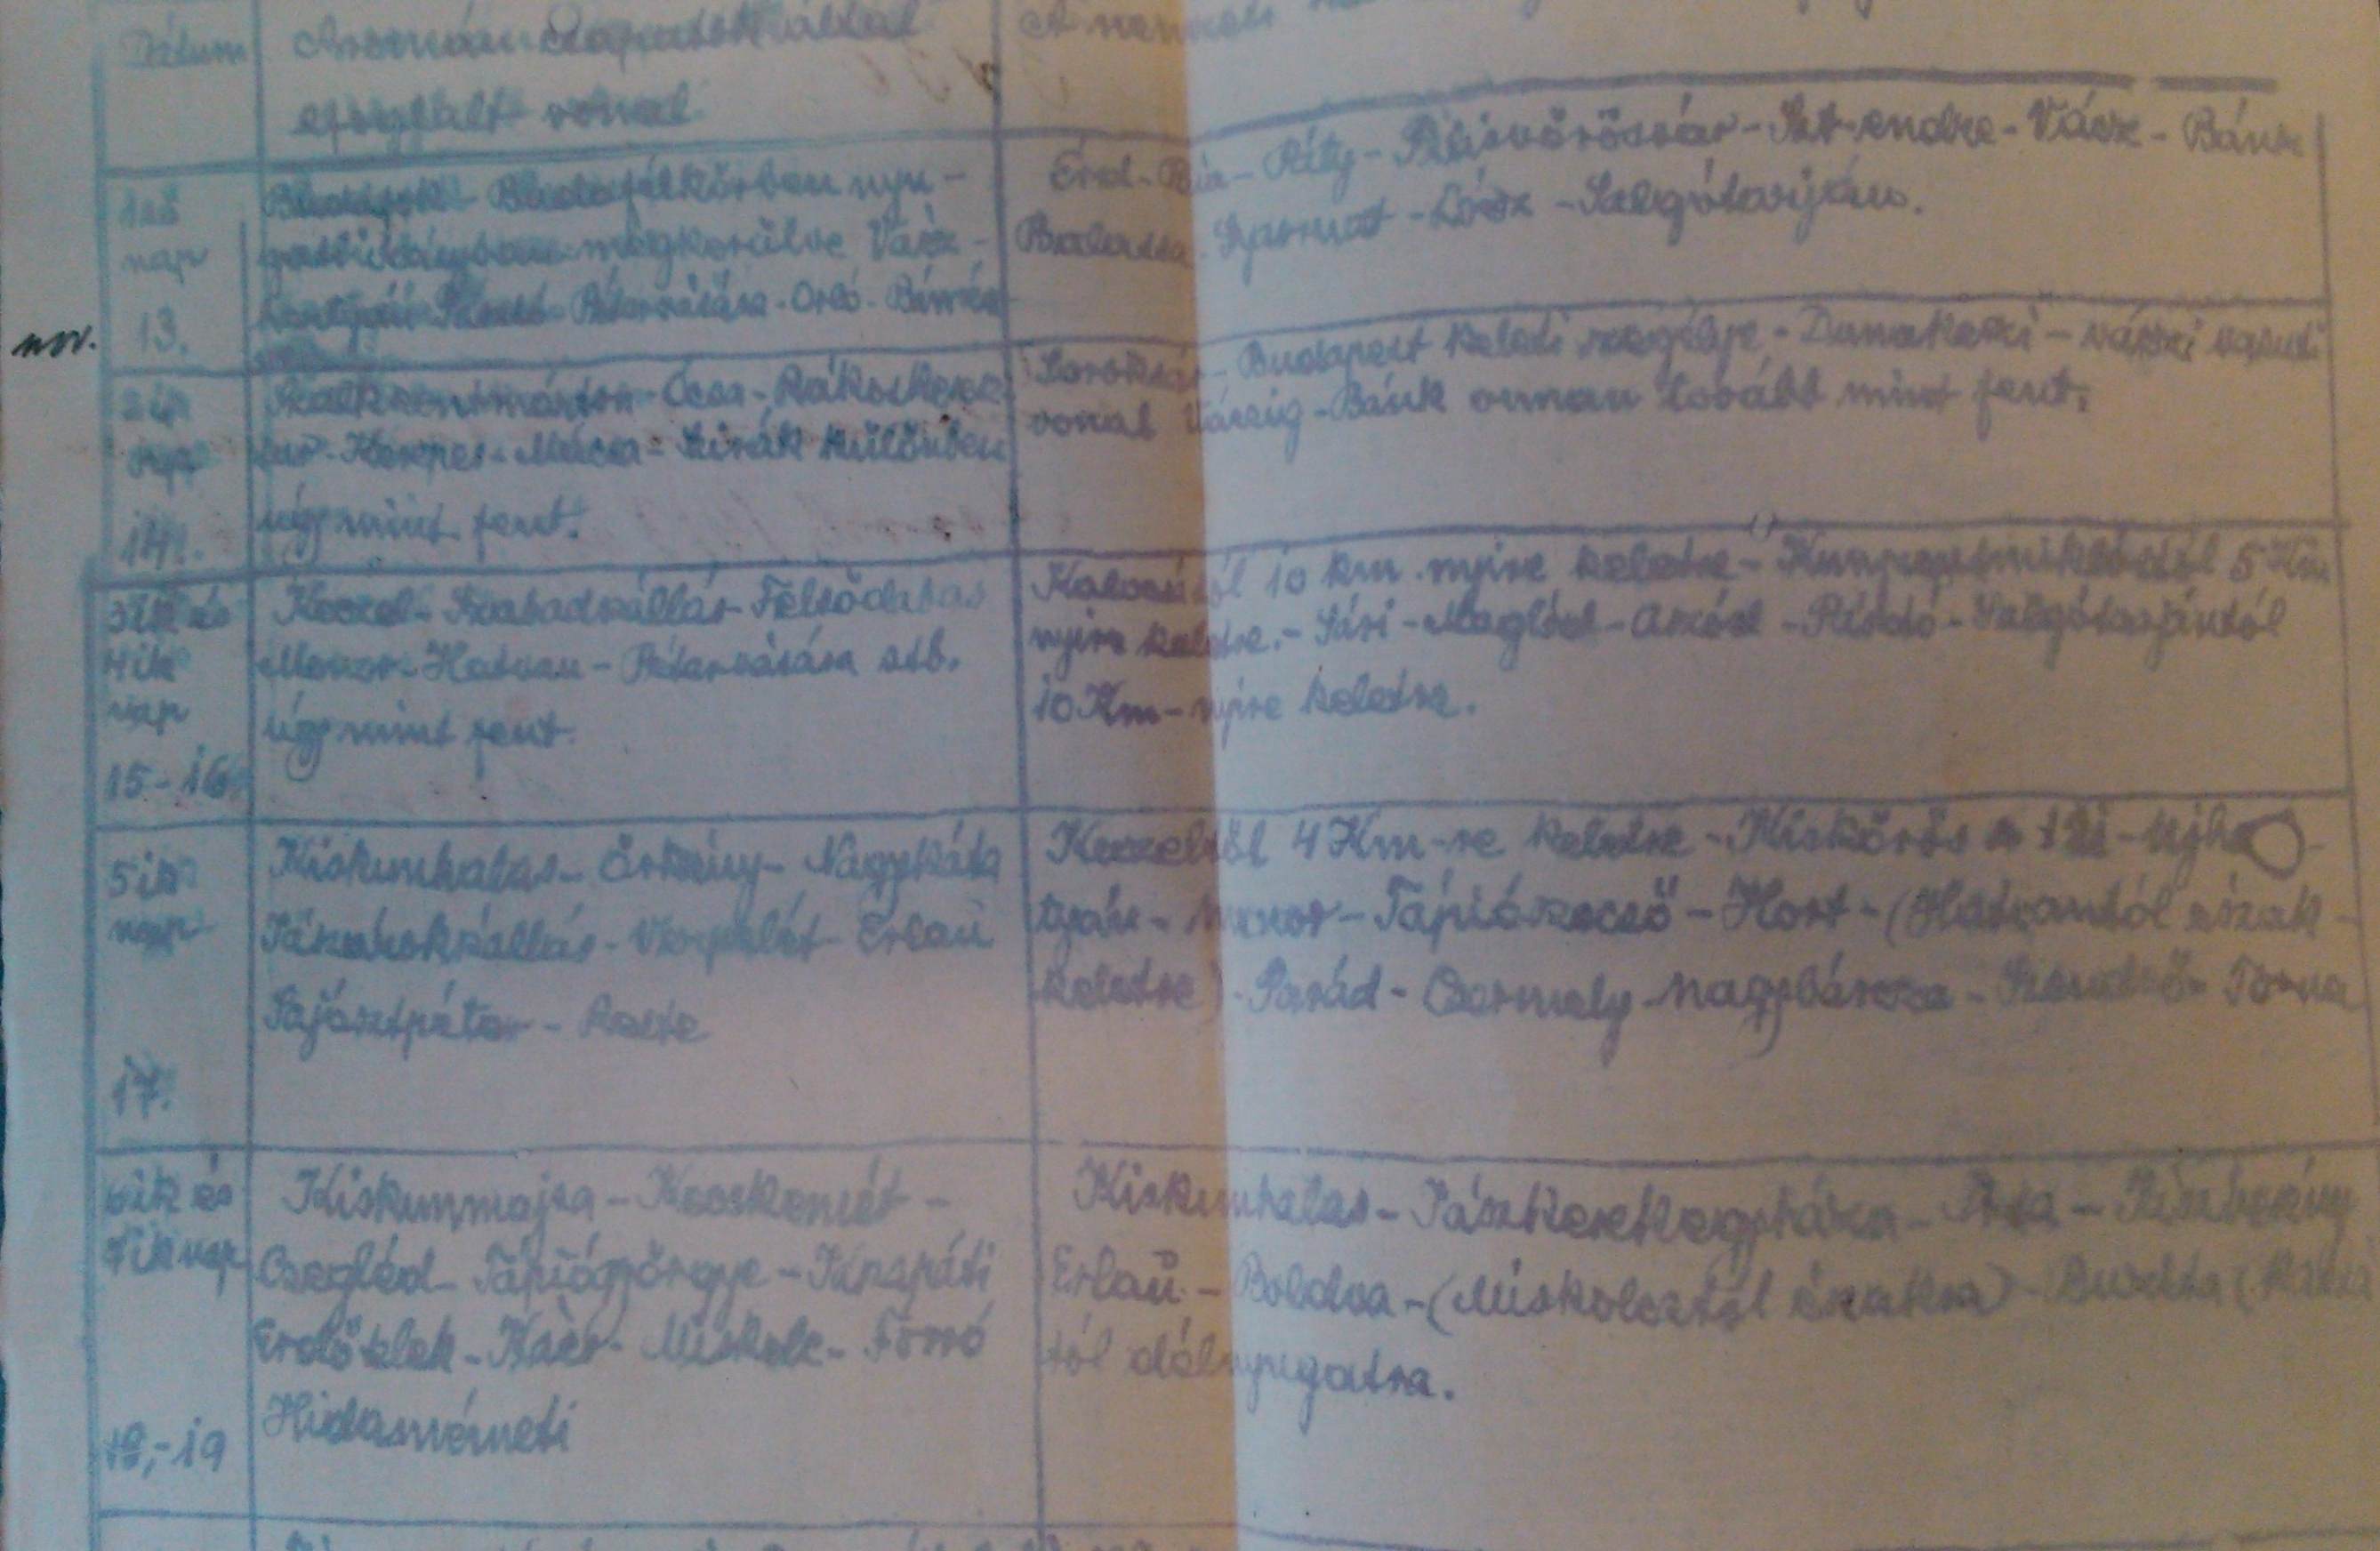 Dátum
A román csapatok által
elfoglalt vonal
A nemzeti
1ső
nap
nov. 13.
Budafok - Budafélkörben nyu-
gati irányban megkerülve Vácz-
Pásztó - Pétervására - Ózd - Bánréve
Érd - Bia - Páty - Pilisvörösvár - Szt-endre - Vácz - Bánk
Balassa Gyarmat - Lócz - Salgótarján.
2ik
nap
14.
Szalkszentmárton - Ócsa - Rákoskeresz
tur - Kerepes - Mácsa - Szirák különben
úgy mint fent.
Soroksár - Budapest keleti szegélye - Dunakeszi - váczi vasuti
vonal Váczig - Bánk onnan tovább mint fent.
3ik és
4ik
nap
15-16
Keczel - Szabadszállás - Felsődabas
Monor - Hatvan - Pétervására stb.
úgy mint fent.
Kalocsától 10 km. nyire keletre - Kunszentmiklóstól 5 Km
nyire keletre. - Sári - Maglód - Aszód - Pásztó - Salgótarjántól
10 Km-nyire keletre.
5ik
nap
17.
Kiskunhalas - Örkény - Nagykáta
Jászárokszállás - Verpelét - Erlau
Sajósztpéter - Keczeltől 4 Km-re keletre - Kiskőrös - Ujhar
tyán - Monor - Tápiószecső - Hort - (Hatvantól észak-
keletre) - Parád - Csermely - Nagybárcza - Szendrő - Torna
6ik és
7ik nap
18,-19
Kiskunmajsa - Kecskemét -
Czegléd - Tápiógyörgye - Jászapáti
Erdőtelek - Kács - Miskolc - Forró
Hidasnémeti
Kiskunhalas - Jászkerekegyháza - Jászberény
Erlau - Boldva - (Miskolcztól északra) - Buzita (Kassá
tól délnyugatra.